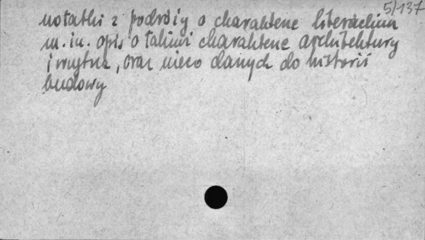 5/137
notatki z podróży o charakterze literackim
m.in. opis o takimi charakterze architektury
i wnętrz, oraz nieco danych do historii
budowy